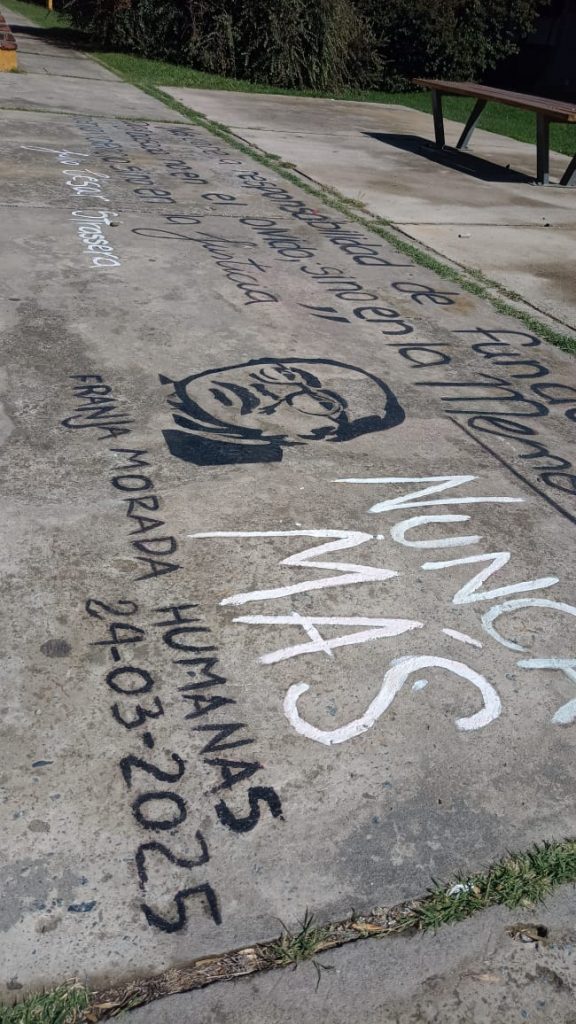 la responsabilidad de funda
no en el olvido sino en la Memo
sino en la Justicia"
Julio César Strassera
NUNCA
MÁS
FRANJA MORADA HUMANAS
24-03-2025